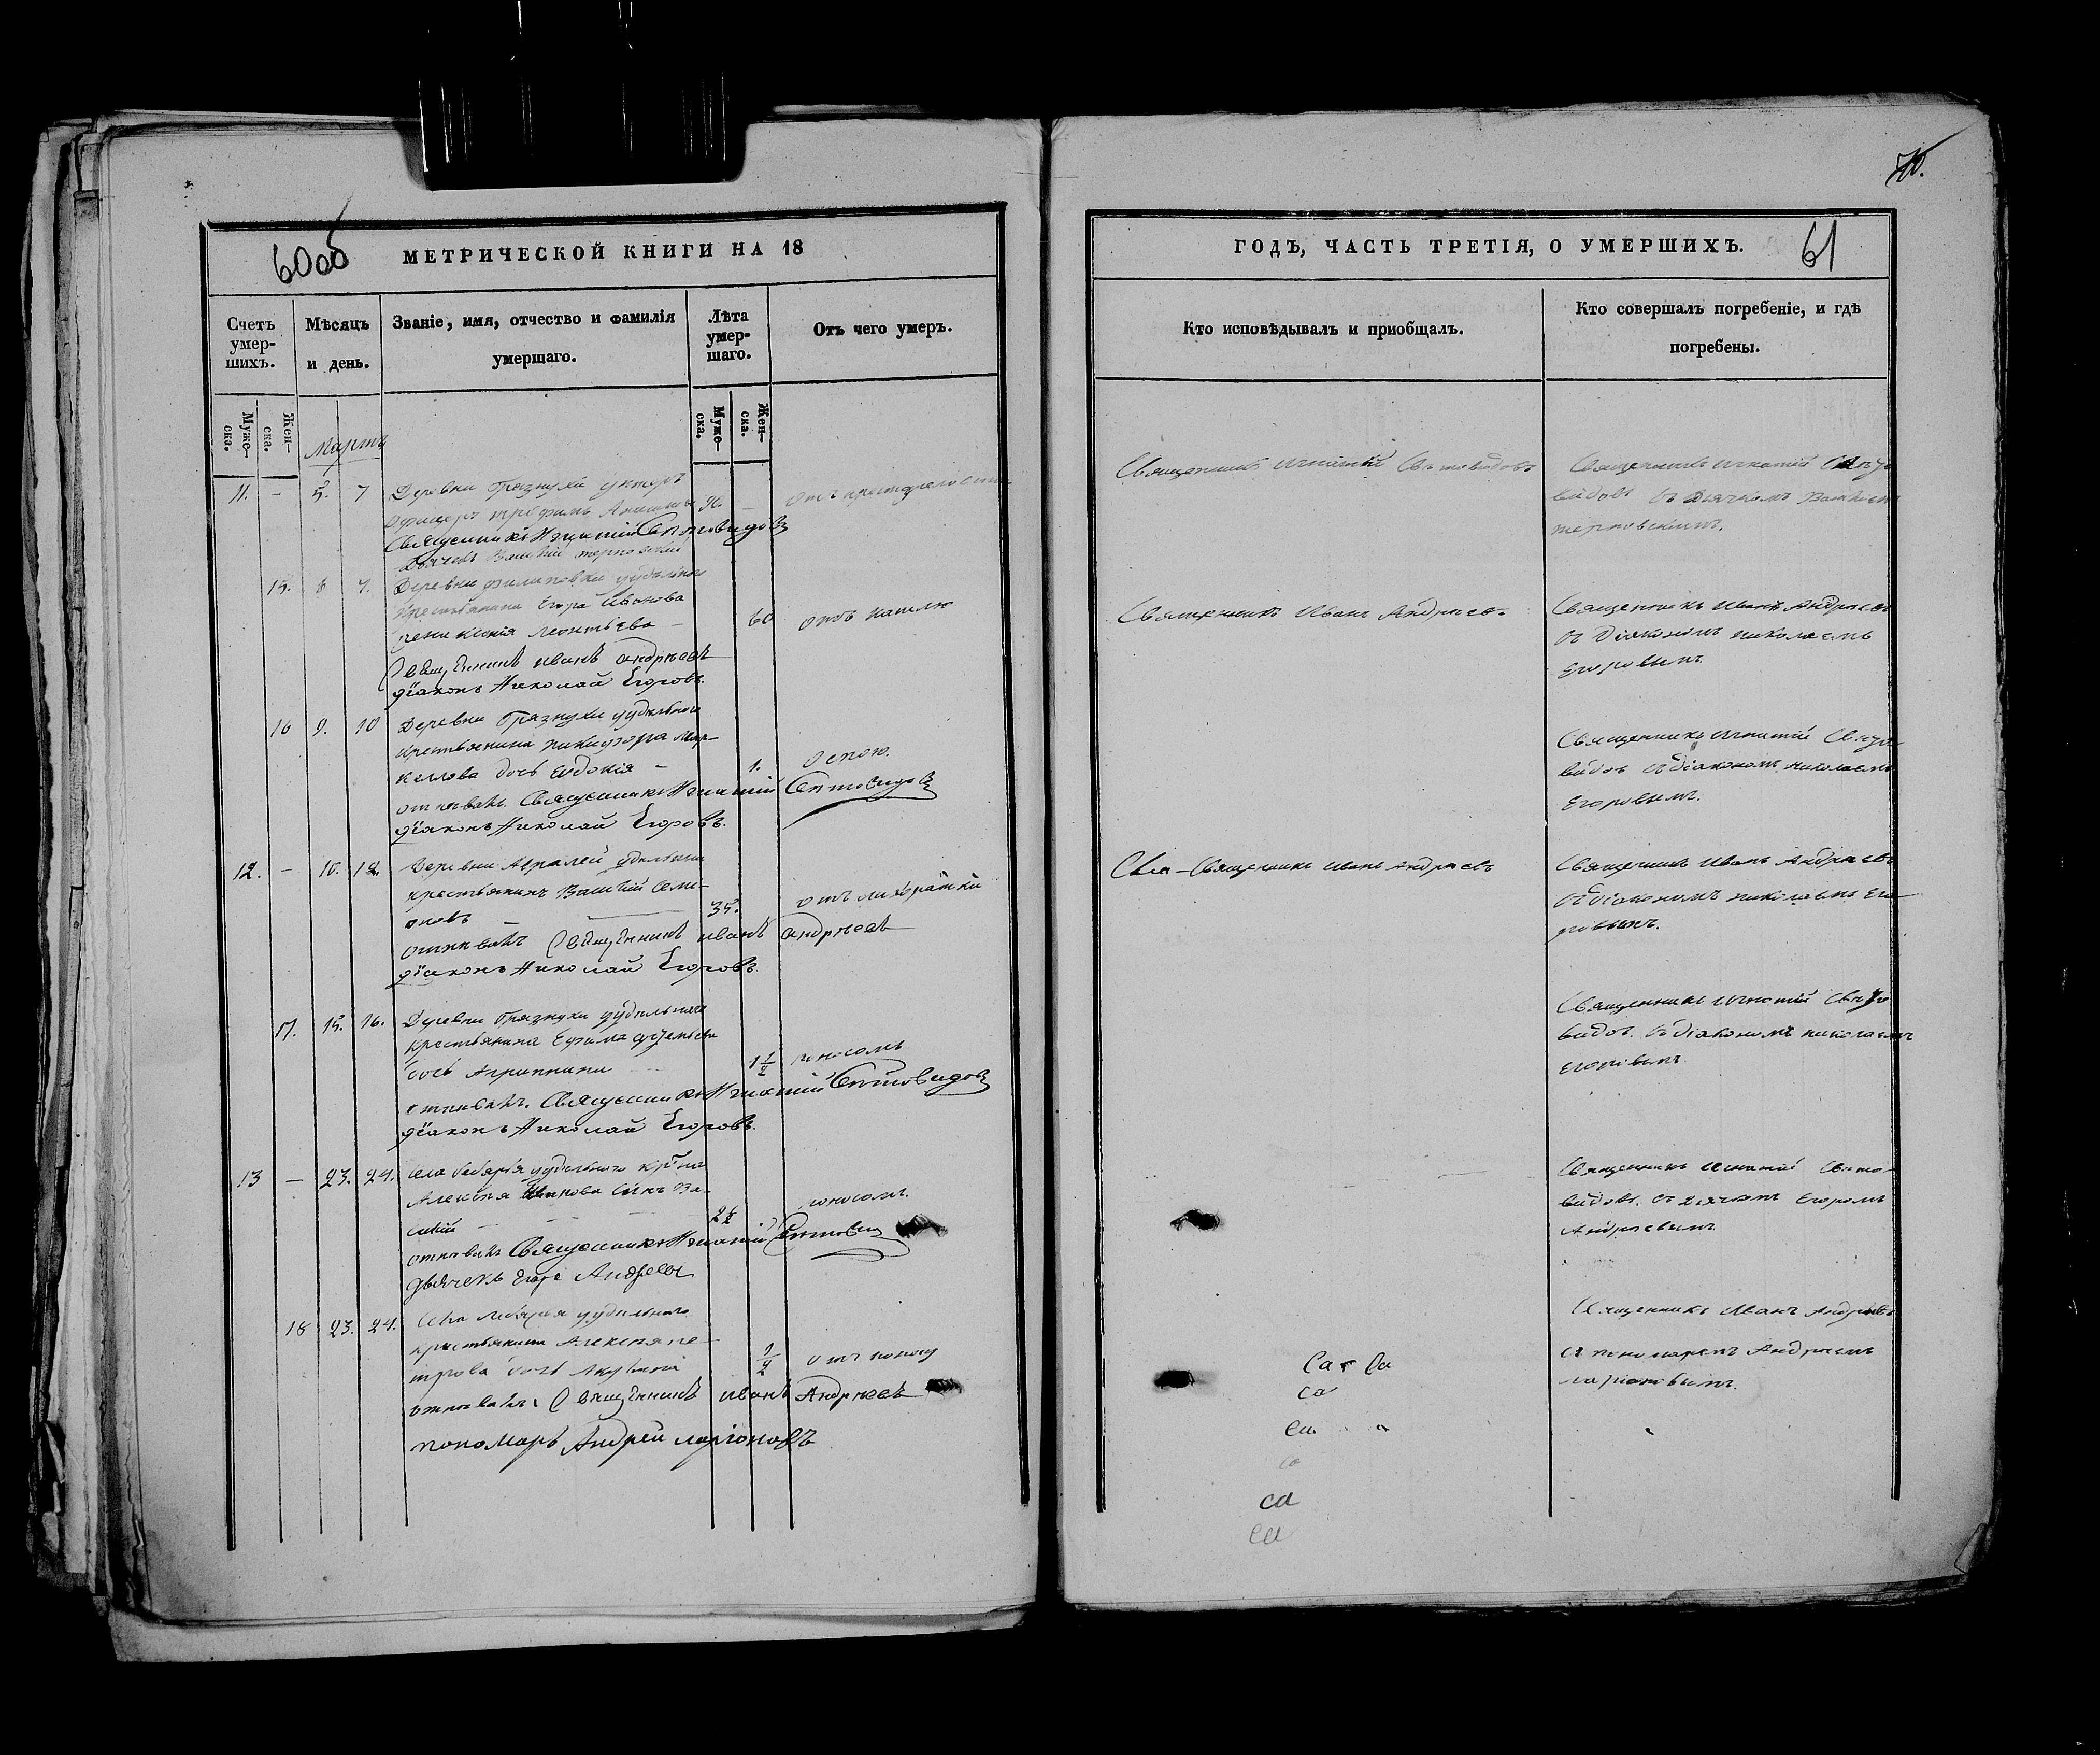 60об
МЕТРИЧЕСКОЙ КНИГИ НА 18
Счетъ умер- шихъ.
Мѣсяцъ и день.
Званіе, имя, отчество и фамилія умершаго.
Лѣта умер- шаго.
Отъ чего умеръ.
Муже- ска.
Жен- ска.
Муже- ска.
Жен- ска.
Мартъ
11. - 5. 7 Деревни Грязнухи унтеръ
офицеръ 90. -
Священникъ Игнатій Святовидовъ
15. 6 7. Деревни Филиповки удѣльнаго
крестьянина Егора Иванова
жена Ксенія Леонтьева 60 отъ кашлю
Священникъ Иванъ Андреевъ
діаконъ Николай Егоровъ.
16 9. 10 Деревни Грязнухи удѣльнаго
крестьянина Никифора Мар-
келова дочь Евдокія - 1. оспою.
отпѣвалъ. Священникъ Игнатій Святовидовъ
діаконъ Николай Егоровъ.
12. - 10. 12. Деревни удѣльный
крестьянинъ Василій Семе-
новъ 35. отъ лихорадки
отпѣвалъ Священникъ Иванъ Андреевъ
діаконъ Николай Егоровъ.
17. 15. 16. Деревни Грязнухи удѣльнаго
крестьянина Ефима
дочь Агрипина 1 1/2 поносомъ
отпѣвалъ. Священникъ Игнатій Святовидовъ
діаконъ Николай Егоровъ.
13 - 23. 24. села удѣльнаго
Алексѣя сынъ Ва-
силій поносомъ.
отпѣвалъ Священникъ Игнатій
дьячекъ Егоръ Андреевъ
18 23. 24. села удѣльнаго
крестьянина Алексѣя Пе-
трова дочь Акулина 1/2 отъ поносу
отпѣвалъ. Священникъ Иванъ Андреевъ
пономарь Андрей Ларіоновъ
70.
ГОДЪ, ЧАСТЬ ТРЕТІЯ, О УМЕРШИХЪ.
61
Кто исповѣдывалъ и приобщалъ.
Кто совершалъ погребеніе, и гдѣ погребены.
Священникъ Игнатій Святовидовъ
Священникъ Игнатій Свято-
видовъ съ дьячкомъ
Священникъ Иванъ Андреевъ
Священникъ Иванъ Андреевъ
съ діакономъ Николаемъ
Егоровымъ.
Священникъ Игнатій Свято-
видовъ съ діакономъ Николаемъ
Егоровымъ.
Свя - Священникъ Иванъ Андреевъ
Священникъ Иванъ Андреевъ
съ діакономъ Николаемъ Его-
ровымъ.
Священникъ Игнатій Свято-
видовъ. съ діакономъ Николаемъ
Егоровымъ
Священникъ Игнатій Свято-
видовъ. съ дьячкомъ Егоромъ
Андреевымъ.
Священникъ Иванъ Андреевъ
съ пономаремъ Андреемъ
Ларіоновымъ.
са
са
са